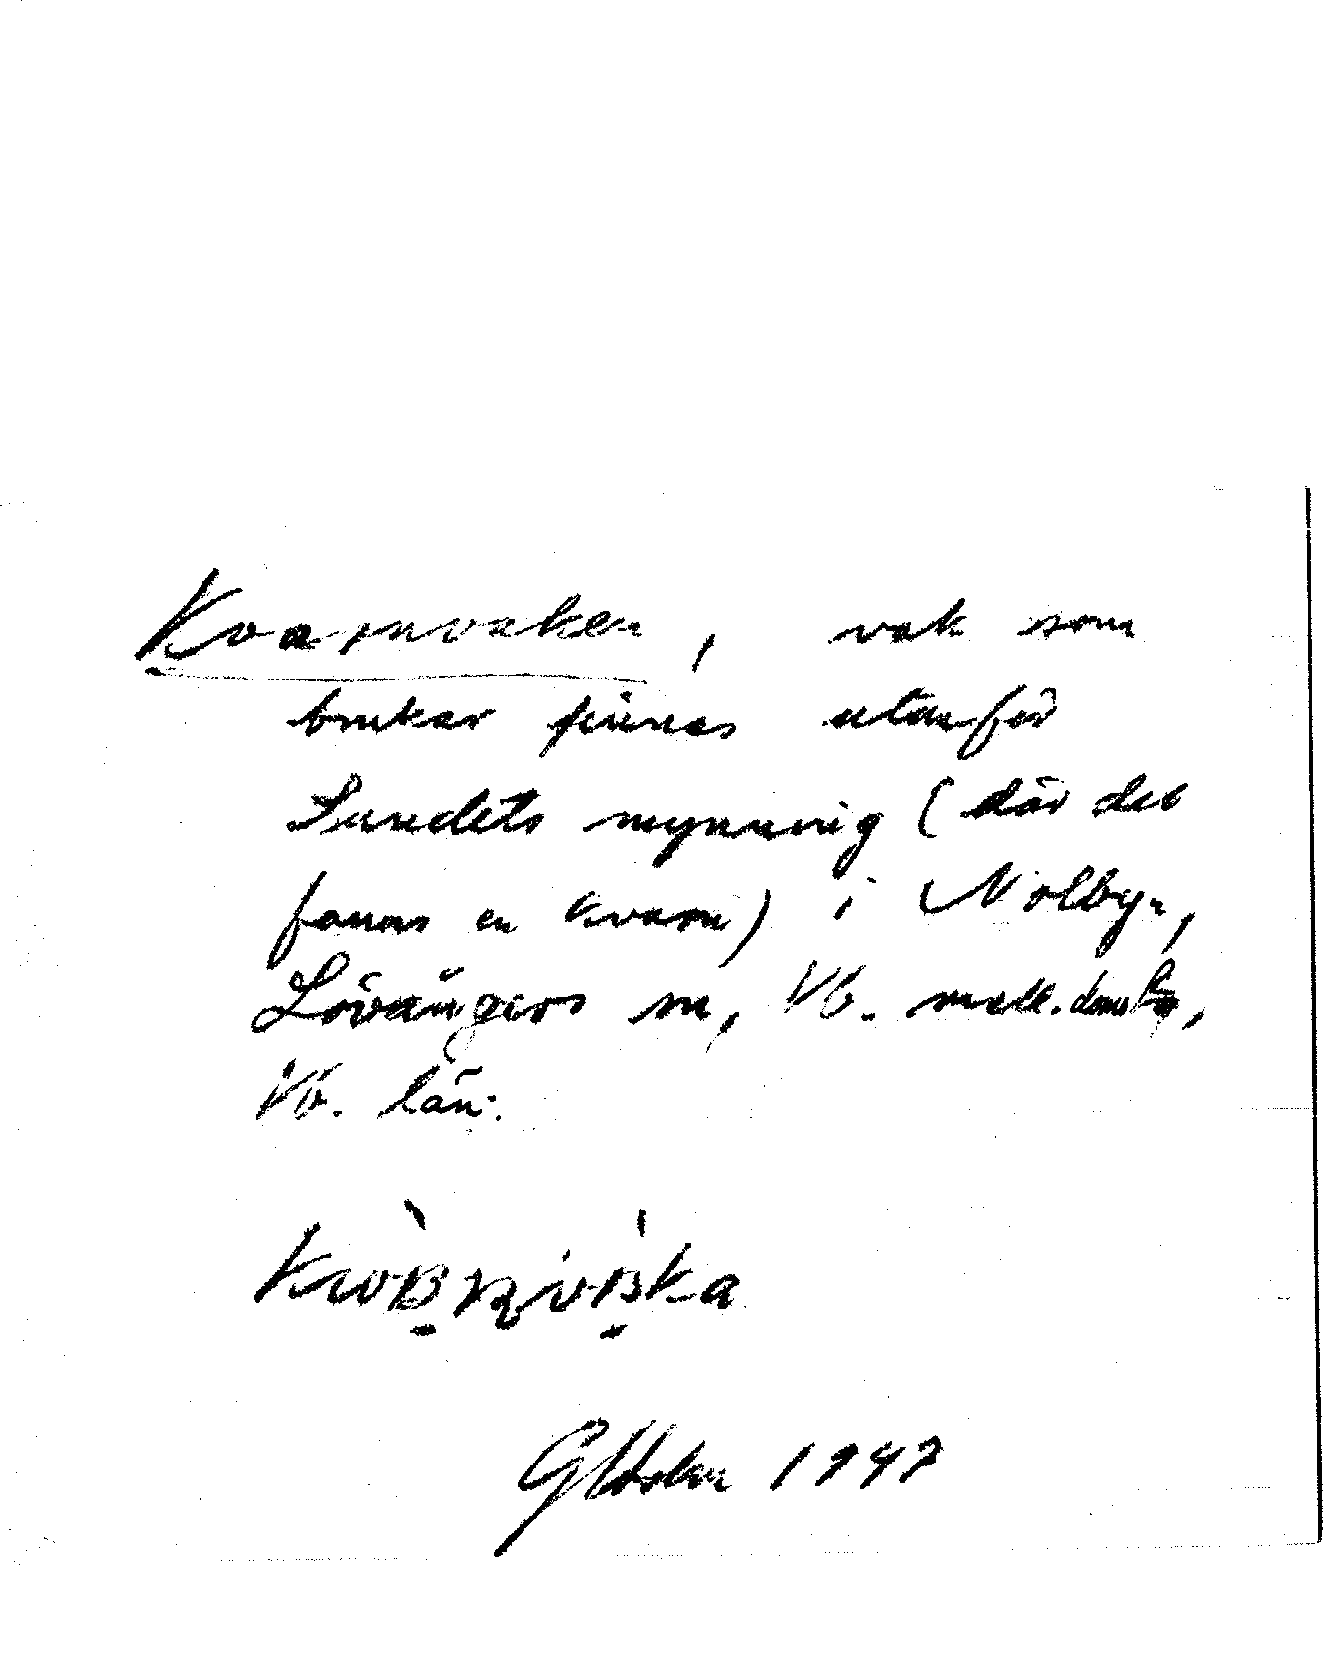 Kvarnvaken, vak som
brukar finnas utanför
Sundets mynning (där det
fanns en kvarn) i Nolbyn,
Lövångers sn, Vb. mell. domsaga,
Vb. län.
1947